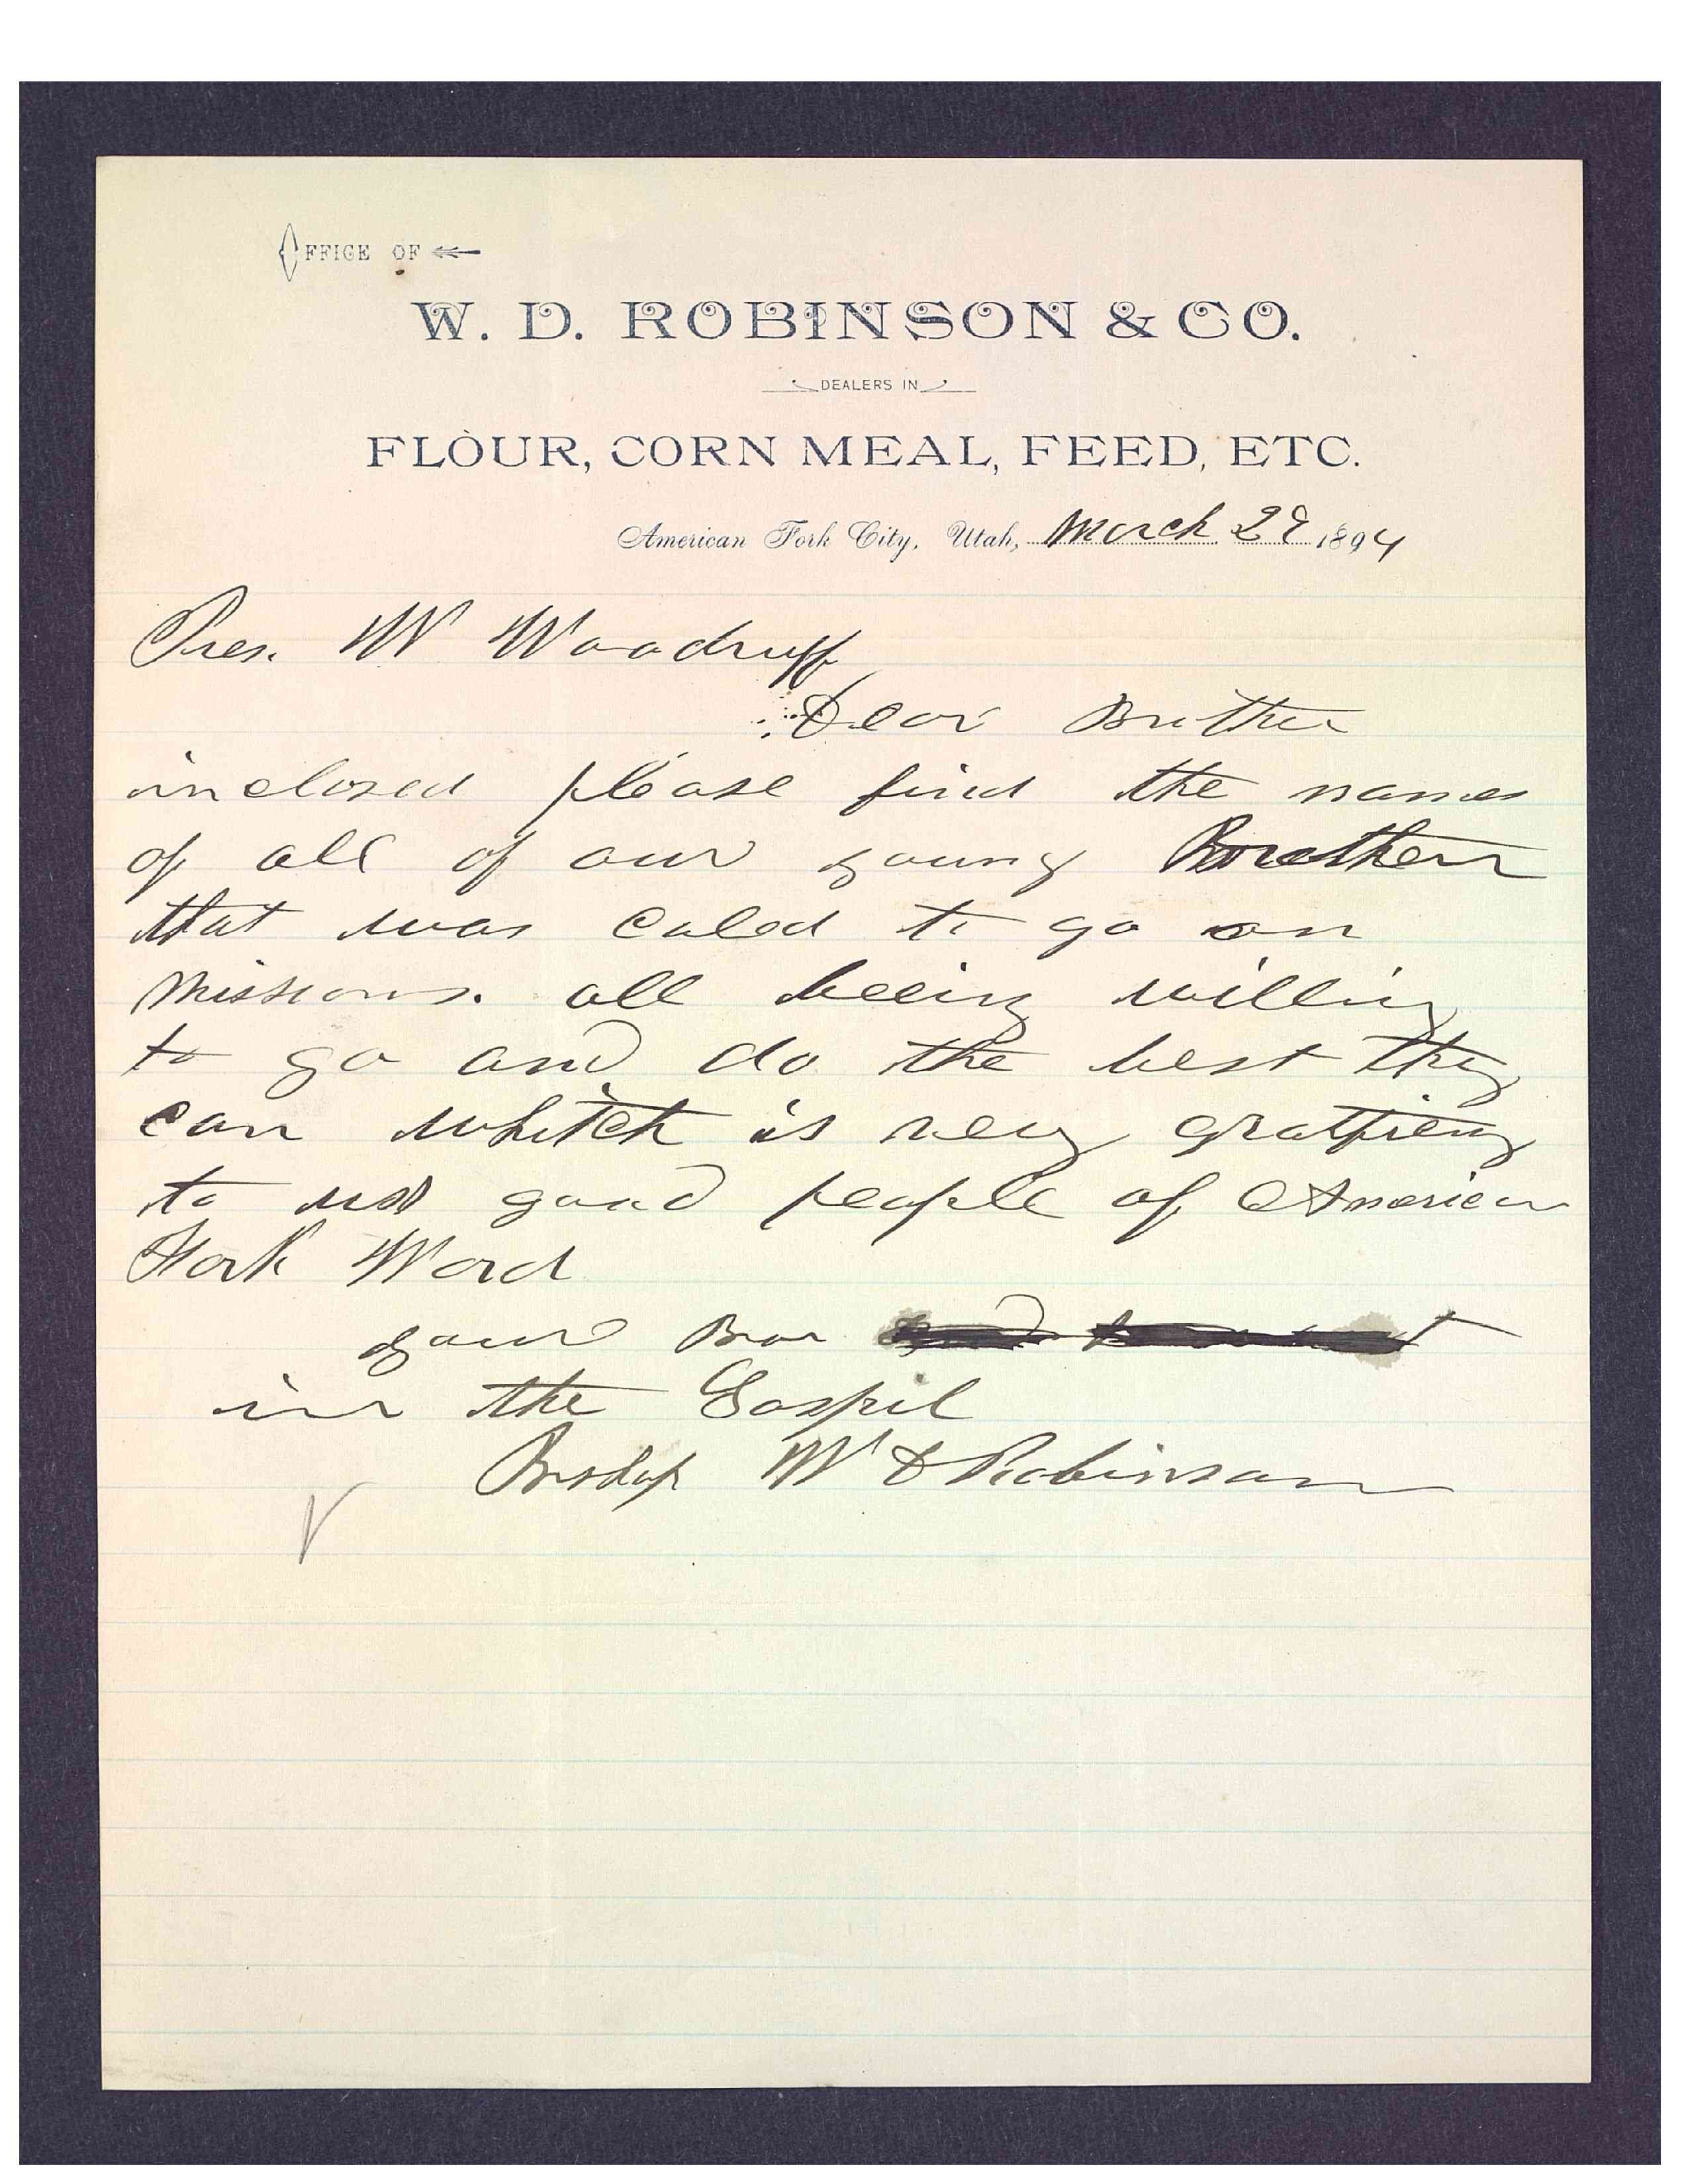 OFFICE OF
W. D. ROBINSON & CO.
DEALERS IN
FLOUR, CORN MEAL, FEED, ETC.
American Fork City, Utah, March 29 1894
Pres. W Woodruff
Dear Brother
inclosed please find the names
of all of our young Breathern
that was caled to go on
missions. all being willing
to go and do the best they
can whitch is very gratfieng
to us good people of American
Fork Ward
your Bro
in the Gospil
Bishop W D Robinson